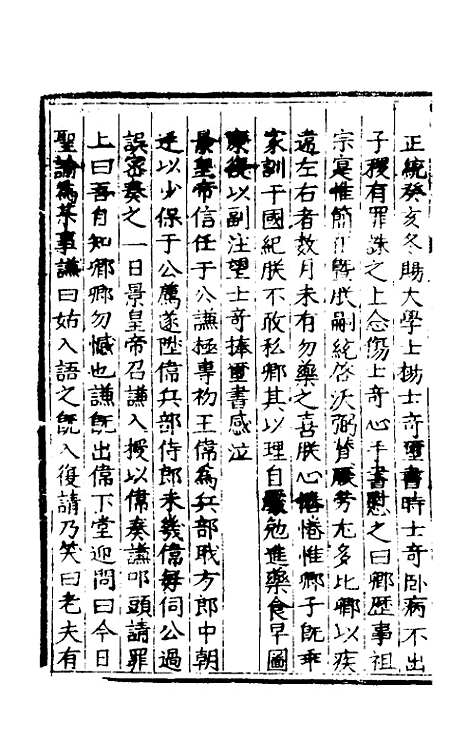 正統癸亥冬賜大學士楊士奇璽書時士奇卧病不出
子稷有罪誅之上念傷士奇心手書慰之曰卿歷事祖
宗寔惟簡曁朕嗣統啓沃弼賛厥勞尤多比卿以疾
遠左右者数月未有勿藥之喜朕心惓惓惟卿子旣乖
家訓干國紀朕不敢私卿其以理自勉進藥食早圖
康復以副注望士奇捧璽書感泣
景皇帝信任于公謙極專初王偉爲兵部職方郎中朝
廷以少保于公薦遂陞偉兵部侍郎未幾偉每伺公過
誤密奏之一日景皇帝召謙入授以偉奏謙叩頭請罪
上曰吾自知卿卿勿憾也謙旣出偉下堂迎問曰今日
聖諭爲某事謙曰姑入語之旣入復請乃笑曰老夫有